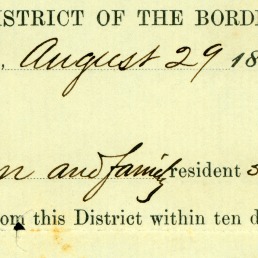 DISTRICT OF THE BORDE
, August 29 18
n and family resident s
om this District within ten d